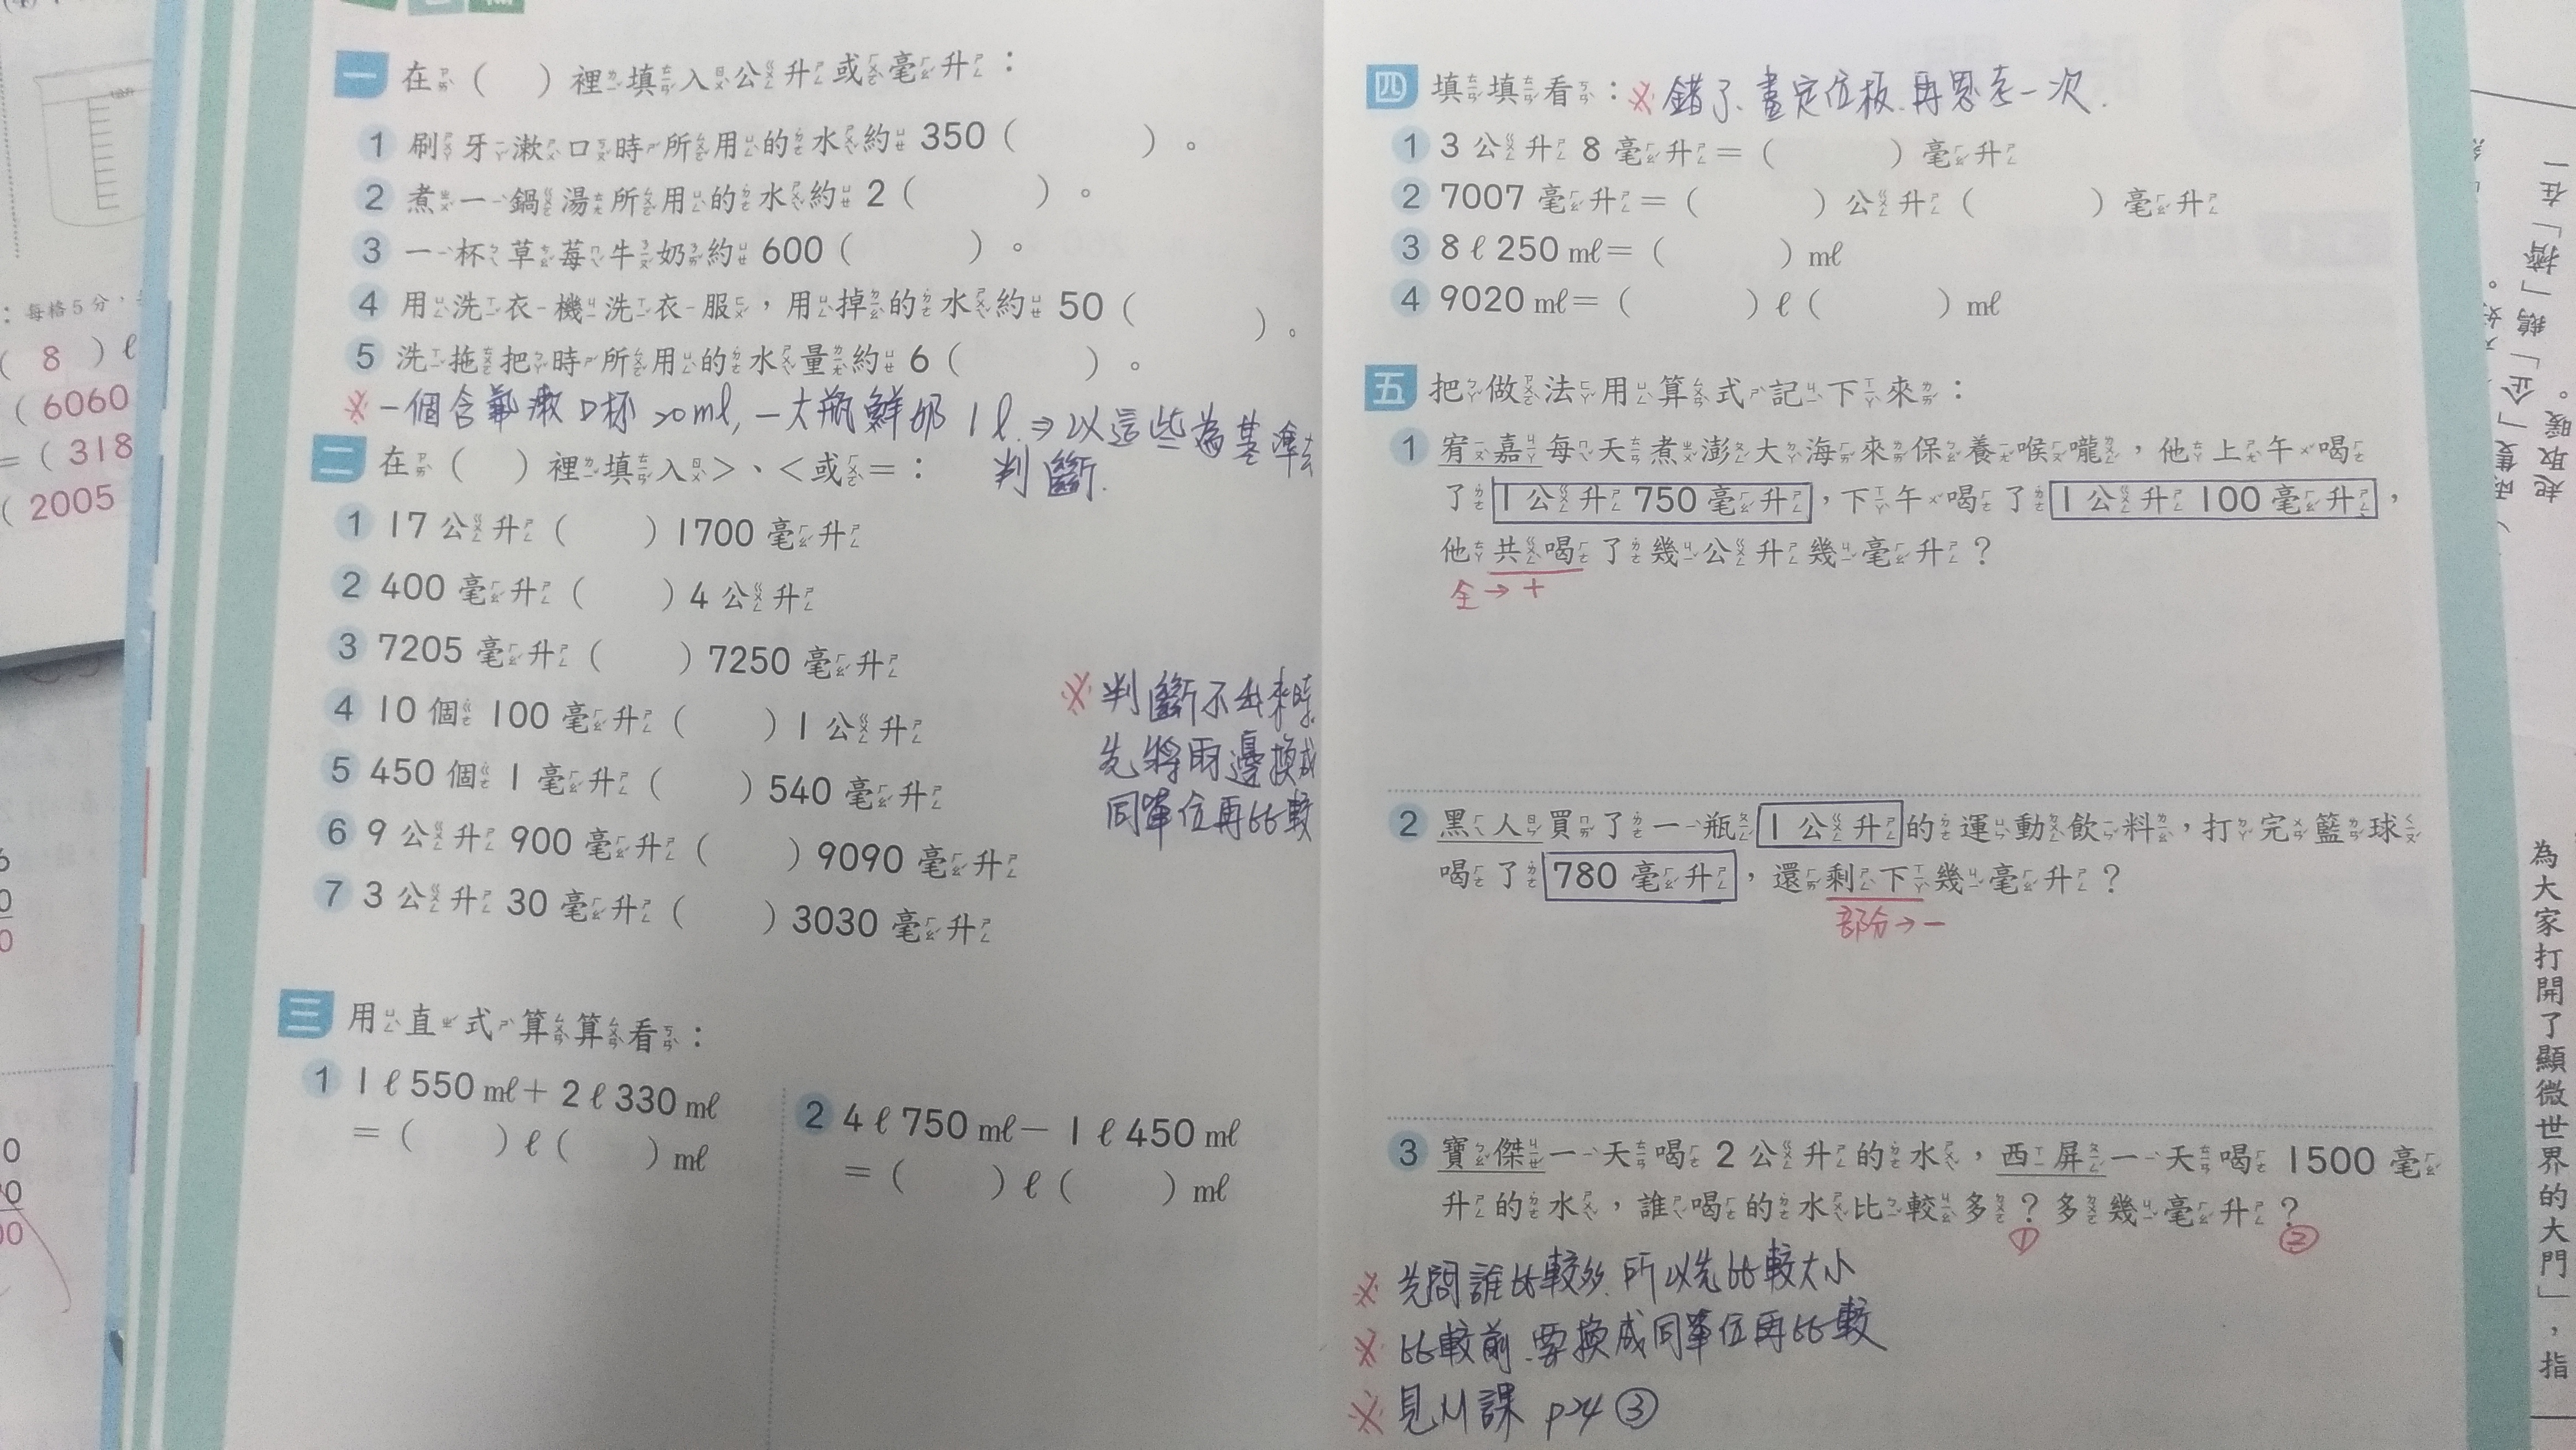 一 在（ ）裡填入公升或毫升：
1 刷牙漱口時所用的水約 350（ ）。
2 煮一鍋湯所用的水約 2（ ）。
3 一杯草莓牛奶約 600（ ）。
4 用洗衣機洗衣服，用掉的水約 50（ ）。
5 洗拖把時所用的水量約 6（ ）。
※ 一個含氟漱口杯 20ml, 一大瓶鮮奶 1ℓ ⇒ 以這些為基準去
判斷.
二 在（ ）裡填入＞、＜或＝：
1 17 公升（ ）1700 毫升
2 400 毫升（ ）4 公升
3 7205 毫升（ ）7250 毫升
4 10 個 100 毫升（ ）1 公升
5 450 個 1 毫升（ ）540 毫升
6 9 公升 900 毫升（ ）9090 毫升
7 3 公升 30 毫升（ ）3030 毫升
※ 判斷不出來時,
先將兩邊換成
同單位再比較
三 用直式算算看：
1 1 ℓ 550 mℓ＋2 ℓ 330 mℓ
＝（ ）ℓ（ ）mℓ
2 4 ℓ 750 mℓ－1 ℓ 450 mℓ
＝（ ）ℓ（ ）mℓ
四 填填看：※ 錯了、畫定位板、再思考一次.
1 3 公升 8 毫升＝（ ）毫升
2 7007 毫升＝（ ）公升（ ）毫升
3 8 ℓ 250 mℓ＝（ ）mℓ
4 9020 mℓ＝（ ）ℓ（ ）mℓ
五 把做法用算式記下來：
1 宥嘉每天煮澎大海來保養喉嚨，他上午喝
了 1 公升 750 毫升，下午喝了 1 公升 100 毫升，
他共喝了幾公升幾毫升？
全→＋
2 黑人買了一瓶 1 公升的運動飲料，打完籃球
喝了 780 毫升，還剩下幾毫升？
部分→－
3 寶傑一天喝 2 公升的水，西屏一天喝 1500 毫
升的水，誰喝的水比較多？多幾毫升？
① ②
※ 先問誰比較多, 所以先比較大小
※ 比較前、要換成同單位再比較
※ 見M課 p24 ③
：每格5分，
( 8 ) ℓ
( 6060
= ( 318
( 2005
為大家打開了顯微世界的大門」，指